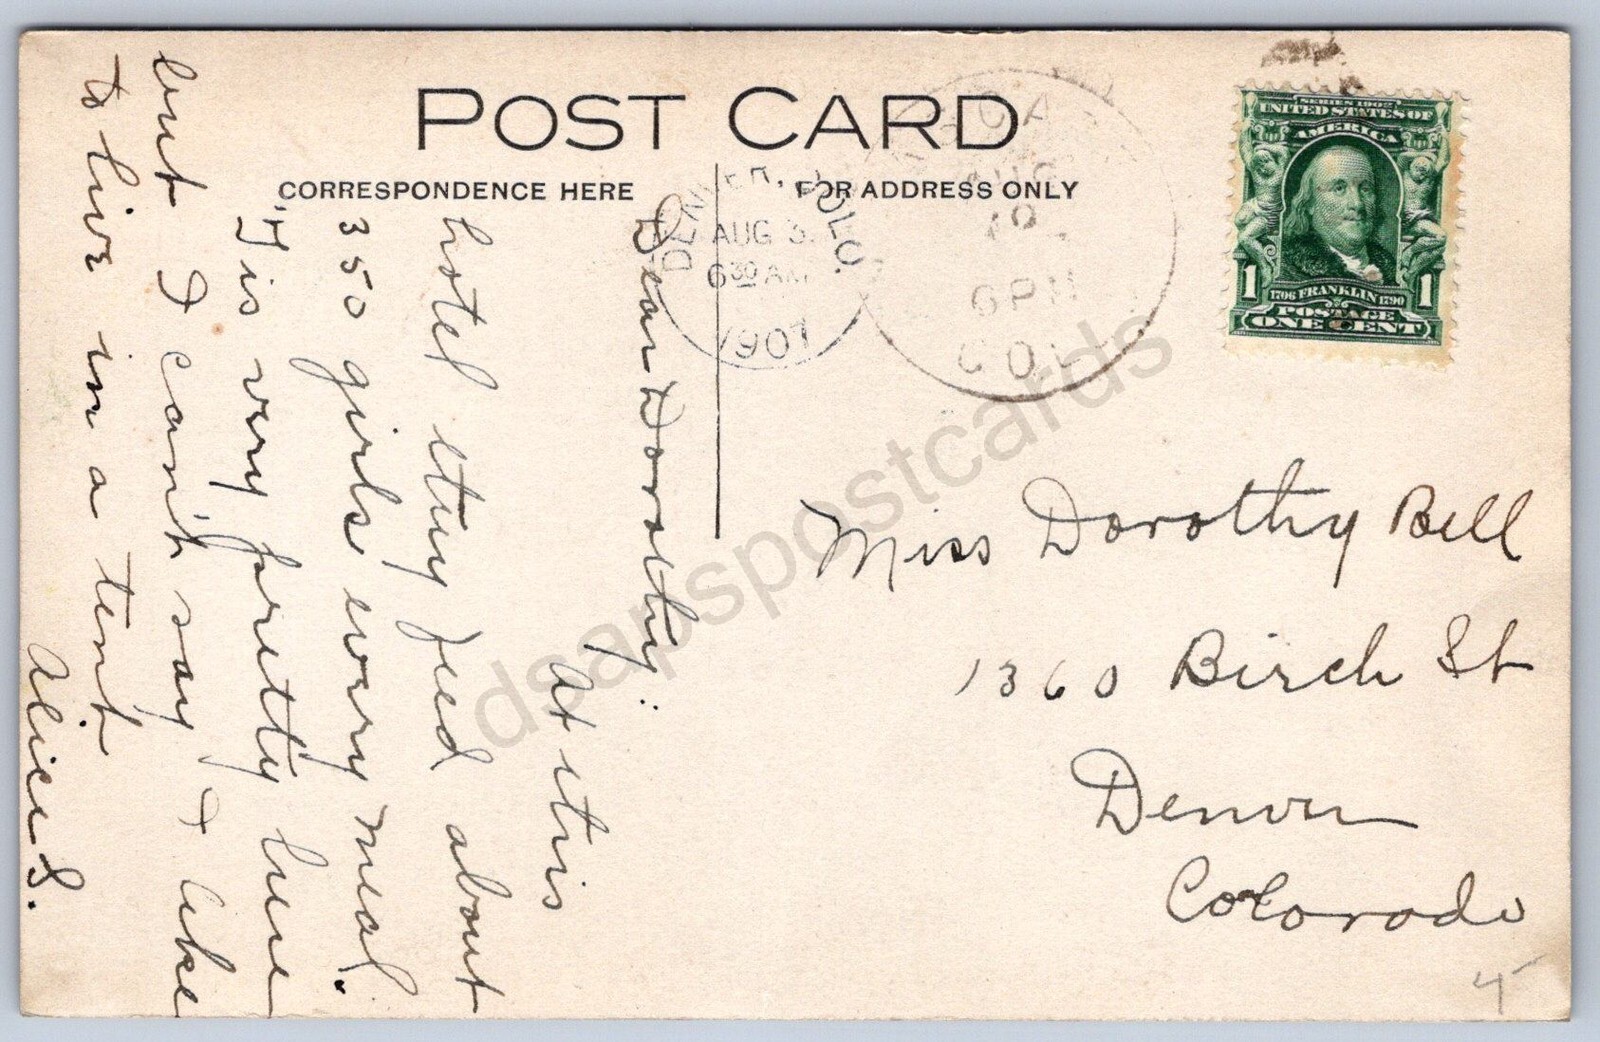 POST CARD
CORRESPONDENCE HERE
FOR ADDRESS ONLY
DENVER, COLO.
AUG 3
6 30 AM
1907
AUG
6 PM
COL
SERIES 1902
UNITED STATES OF
AMERICA
1 1
1706 FRANKLIN 1790
POSTAGE
ONE CENT
Dear Dorothy:
At this
hotel they feed about
350 girls every meal.
'T is very pretty here
but I can't say I like
to live in a tent
Alice S.
Miss Dorothy Bell
1360 Birch St
Denver
Colorado
dsapspostcards